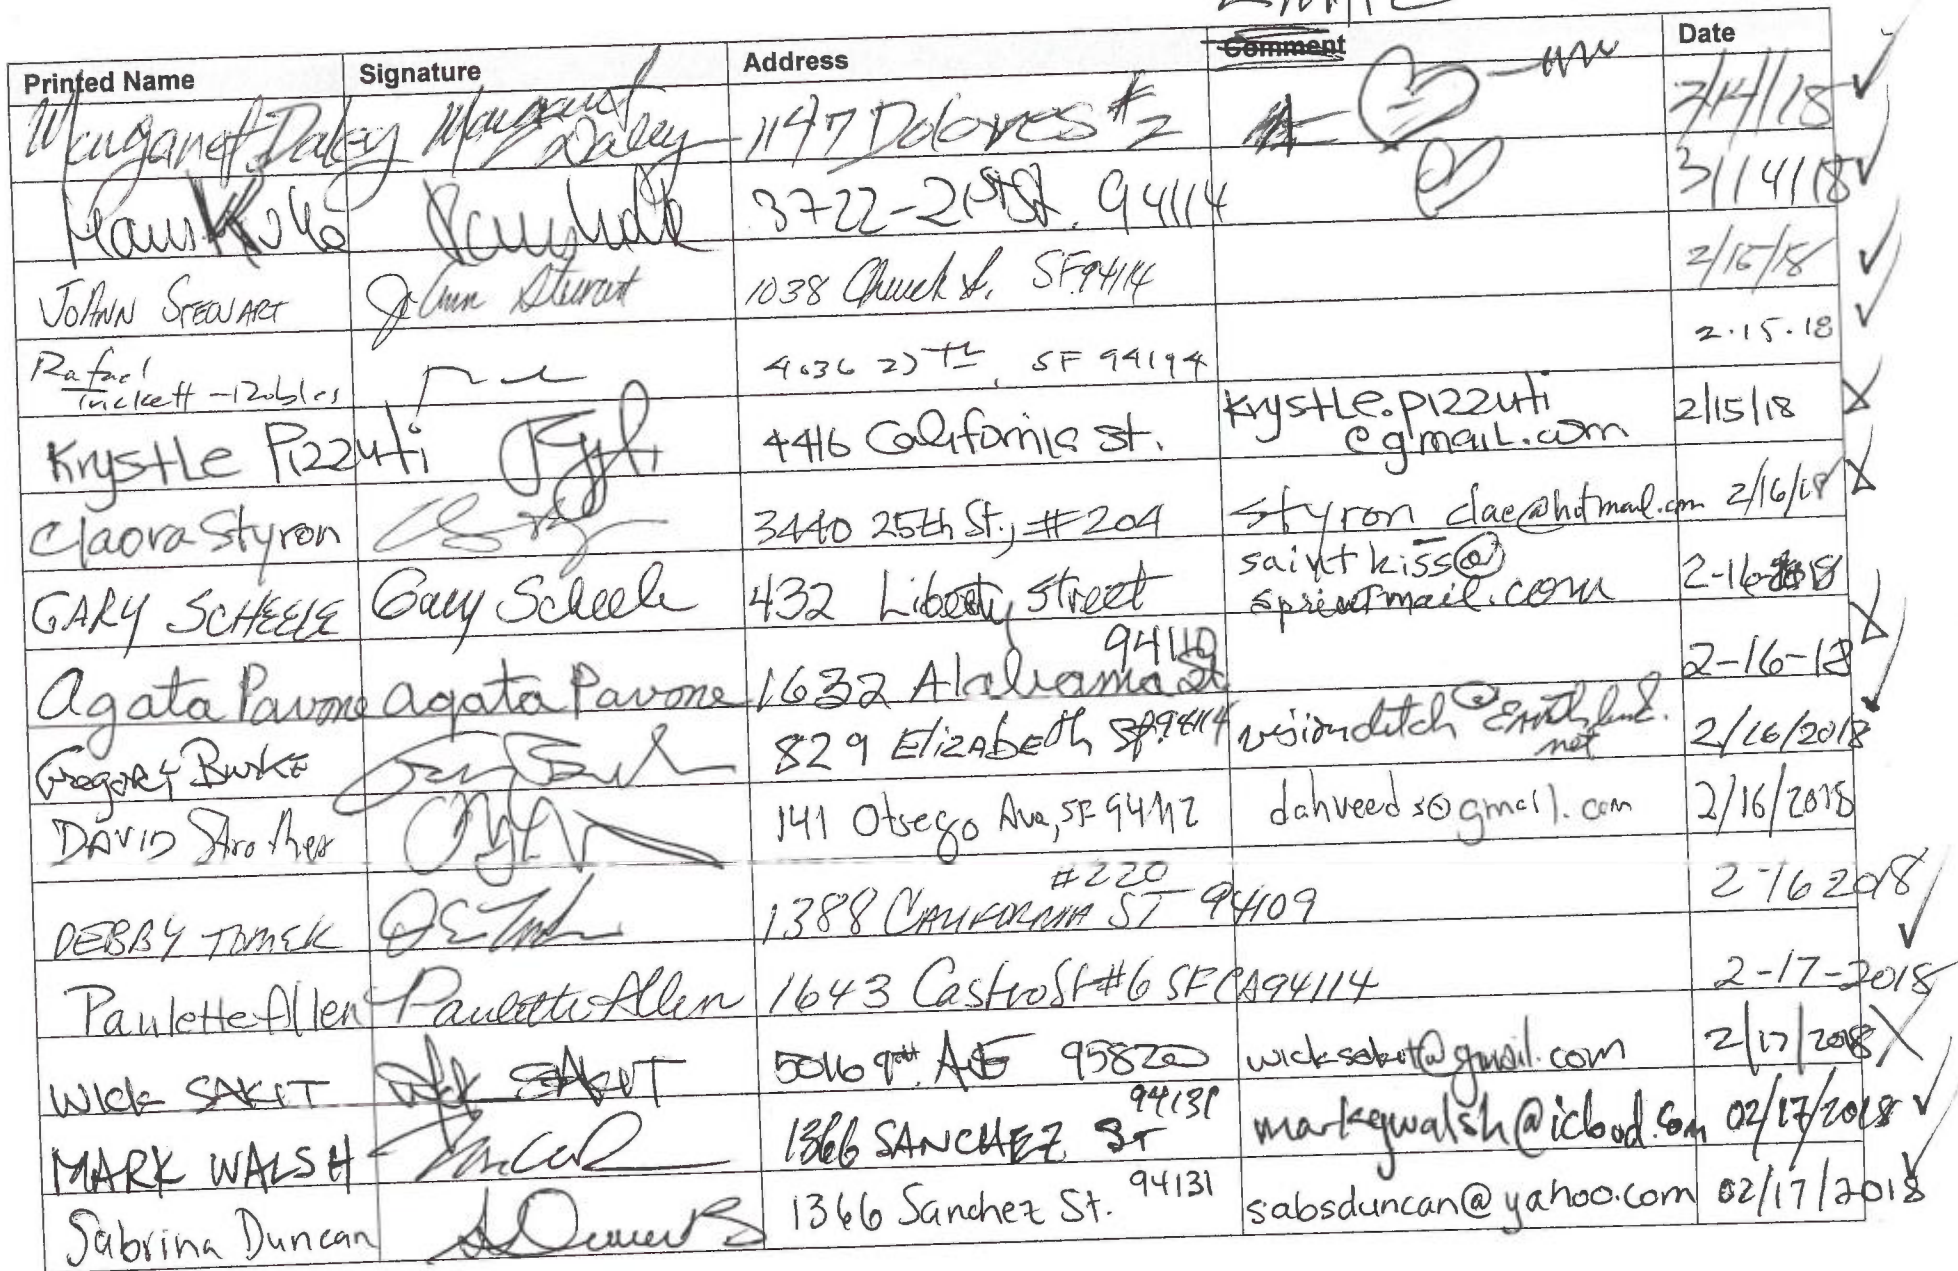 Printed Name Signature Address Comment Date
Margaret Daley Margaret Daley 1147 Dolores #2 2/14/18
3722-21st St. 94114 3/14/18
JoAnn Stewart JoAnn Stewart 1038 Church St. SF 94114 2/15/18
Rafael
Trickett-Robles SF 94194 2.15.18
Krystle Pizzuti 4416 California St. krystle.pizzuti
@gmail.com 2/15/18
Claora Styron 3440 25th St., #204 styron_clae@hotmail.com 2/16/18
GARY SCHEELE Gary Scheele 432 Liberty Street saintkiss@
sprintmail.com 2-16-2018
Agata Pavone Agata Pavone 1632 Alabama St 94110 2-16-18
Gregory Burke 829 Elizabeth St. 94114 visionditch@Earthlink.
net 2/16/2018
DAVID Strother 141 Otsego Ave, SF 94112 dahveeds@gmail.com 2/16/2018
#220
DEBBY TOMEK 1388 CALIFORNIA ST 94109 2-16 2018
Paulette Allen Paulette Allen 1643 Castro St #6 SF CA 94114 2-17-2018
Wick SAKIT Wick SAKIT 5016 9th AVE 95820 wicksakit@gmail.com 2/17/2018
MARK WALSH 1366 SANCHEZ ST 94131 markgwalsh@icloud.com 02/17/2018
Sabrina Duncan 1366 Sanchez St. 94131 sabsduncan@yahoo.com 02/17/2018